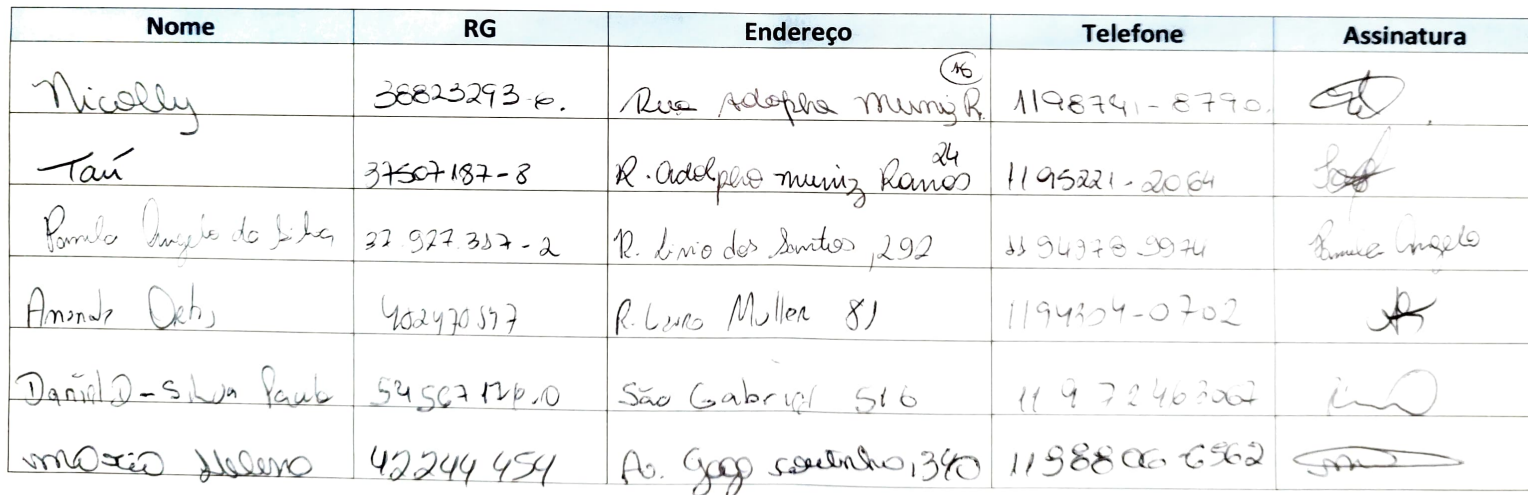 Nome RG Endereço Telefone Assinatura
Nicolly 38823293-6. Rua Adolpho Muniz R. 16 1198741-8790.
Taú 37507187-8 R. Adolpho muniz Ramos 24 1195221-2064
Pamela Angelo da Silva 37.927.357-2 R. Livio dos Santos, 292 11 94378 9974 Pamela Angelo
Amanda 402470547 R. Lauro Muller 81 1194304-0702
Daniel D-Silva Paula 54567126.0 São Gabriel 516 11 972463067
Maria Helena 42244454 Av. Gago coutinho, 340 11988066562